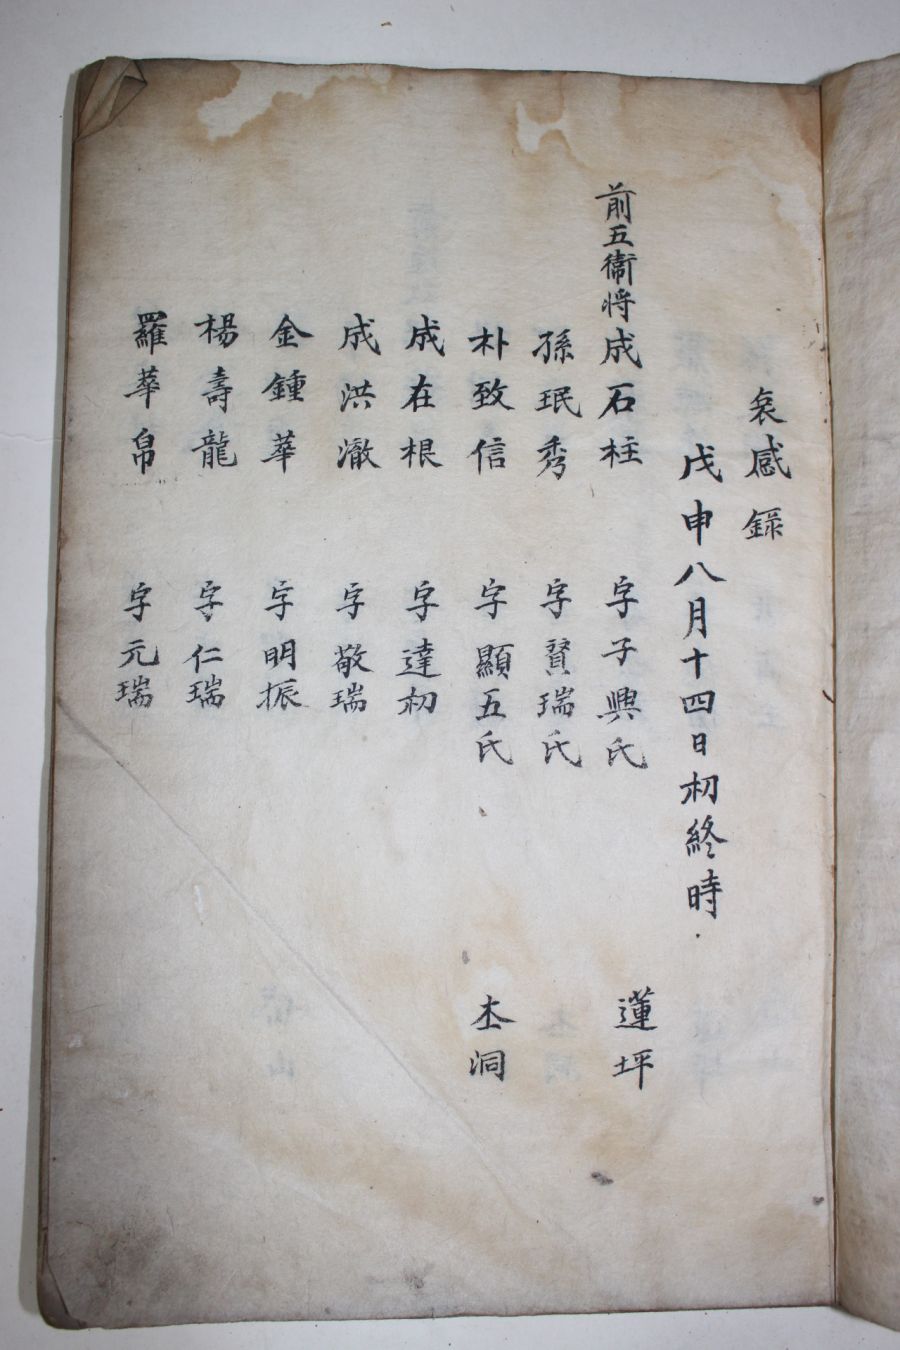 哀感錄
戊申八月十四日初終時
前五衛將成石柱 字子興氏 蓮坪
孫珉秀 字賢瑞氏
朴致信 字顯五氏 杢洞
成在根 字達初
成洪澈 字敬瑞
金鍾華 字明振
楊壽龍 字仁瑞
羅華帛 字元瑞